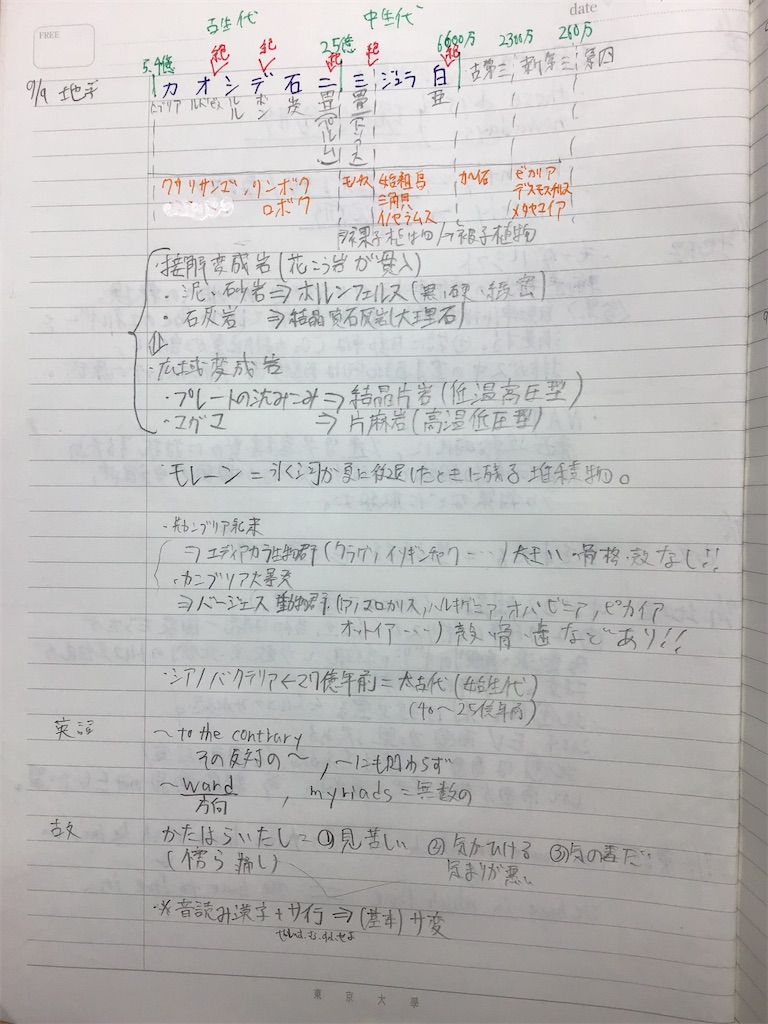 FREE
date
古生代 中生代
5.4億 2.5億 6600万 2300万 260万
9/9 地学
カ オ シ デ 石 二 三 ジュラ 白 古第三 新第三 第四
ルル ボン 炭 畳 畳 亜
クサリサンゴ、リンボク モノチス 始祖鳥 カヘイ石 ビカリア
ロボク 三角貝 デスモスチルス
イノセラムス メタセコイア
裸子植物 被子植物
・接触変成岩(花こう岩が貫入)
・泥・砂岩⇒ホルンフェルス(黒、硬・緻密)
・石灰岩 ⇒結晶質石灰岩(大理石)
・広域変成岩
・プレートの沈みこみ⇒結晶片岩(低温高圧型)
⇒片麻岩(高温低圧型)
・モレーン=氷河が夏に後退したときに残る堆積物。
・先カンブリア末
⇒エディアカラ生物群(クラゲ、イソギンチャク……)大きい・骨格・殻なし!!
・カンブリア大爆発
⇒バージェス動物群(アノマロカリス、ハルキゲニア、オパビニア、ピカイア
オットイア……)殻・骨・歯などあり!!
・シアノバクテリア←27億年前=太古代(始生代)
(40〜25億年前)
英語 〜to the contrary
その反対の〜,〜にも関わらず
〜ward , myriads=無数の
方向
古文 かたはらいたし=①見苦しい ②気がひける ③気の毒だ
(傍ら痛し) 気まりが悪い
・※音読み漢字+サ行⇒(基本)サ変
東京大學